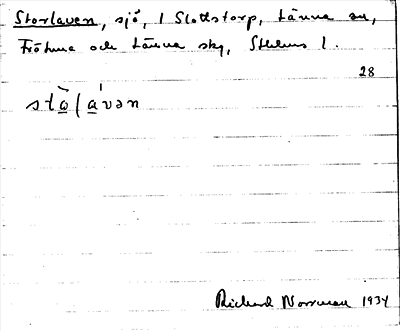 Storlaven, sjö, 1 Slottstorp, Länna sn,
Frötuna och Länna skg, Sthlms l.
28
stò̱l/a̱vən
Richard Norrman 1934